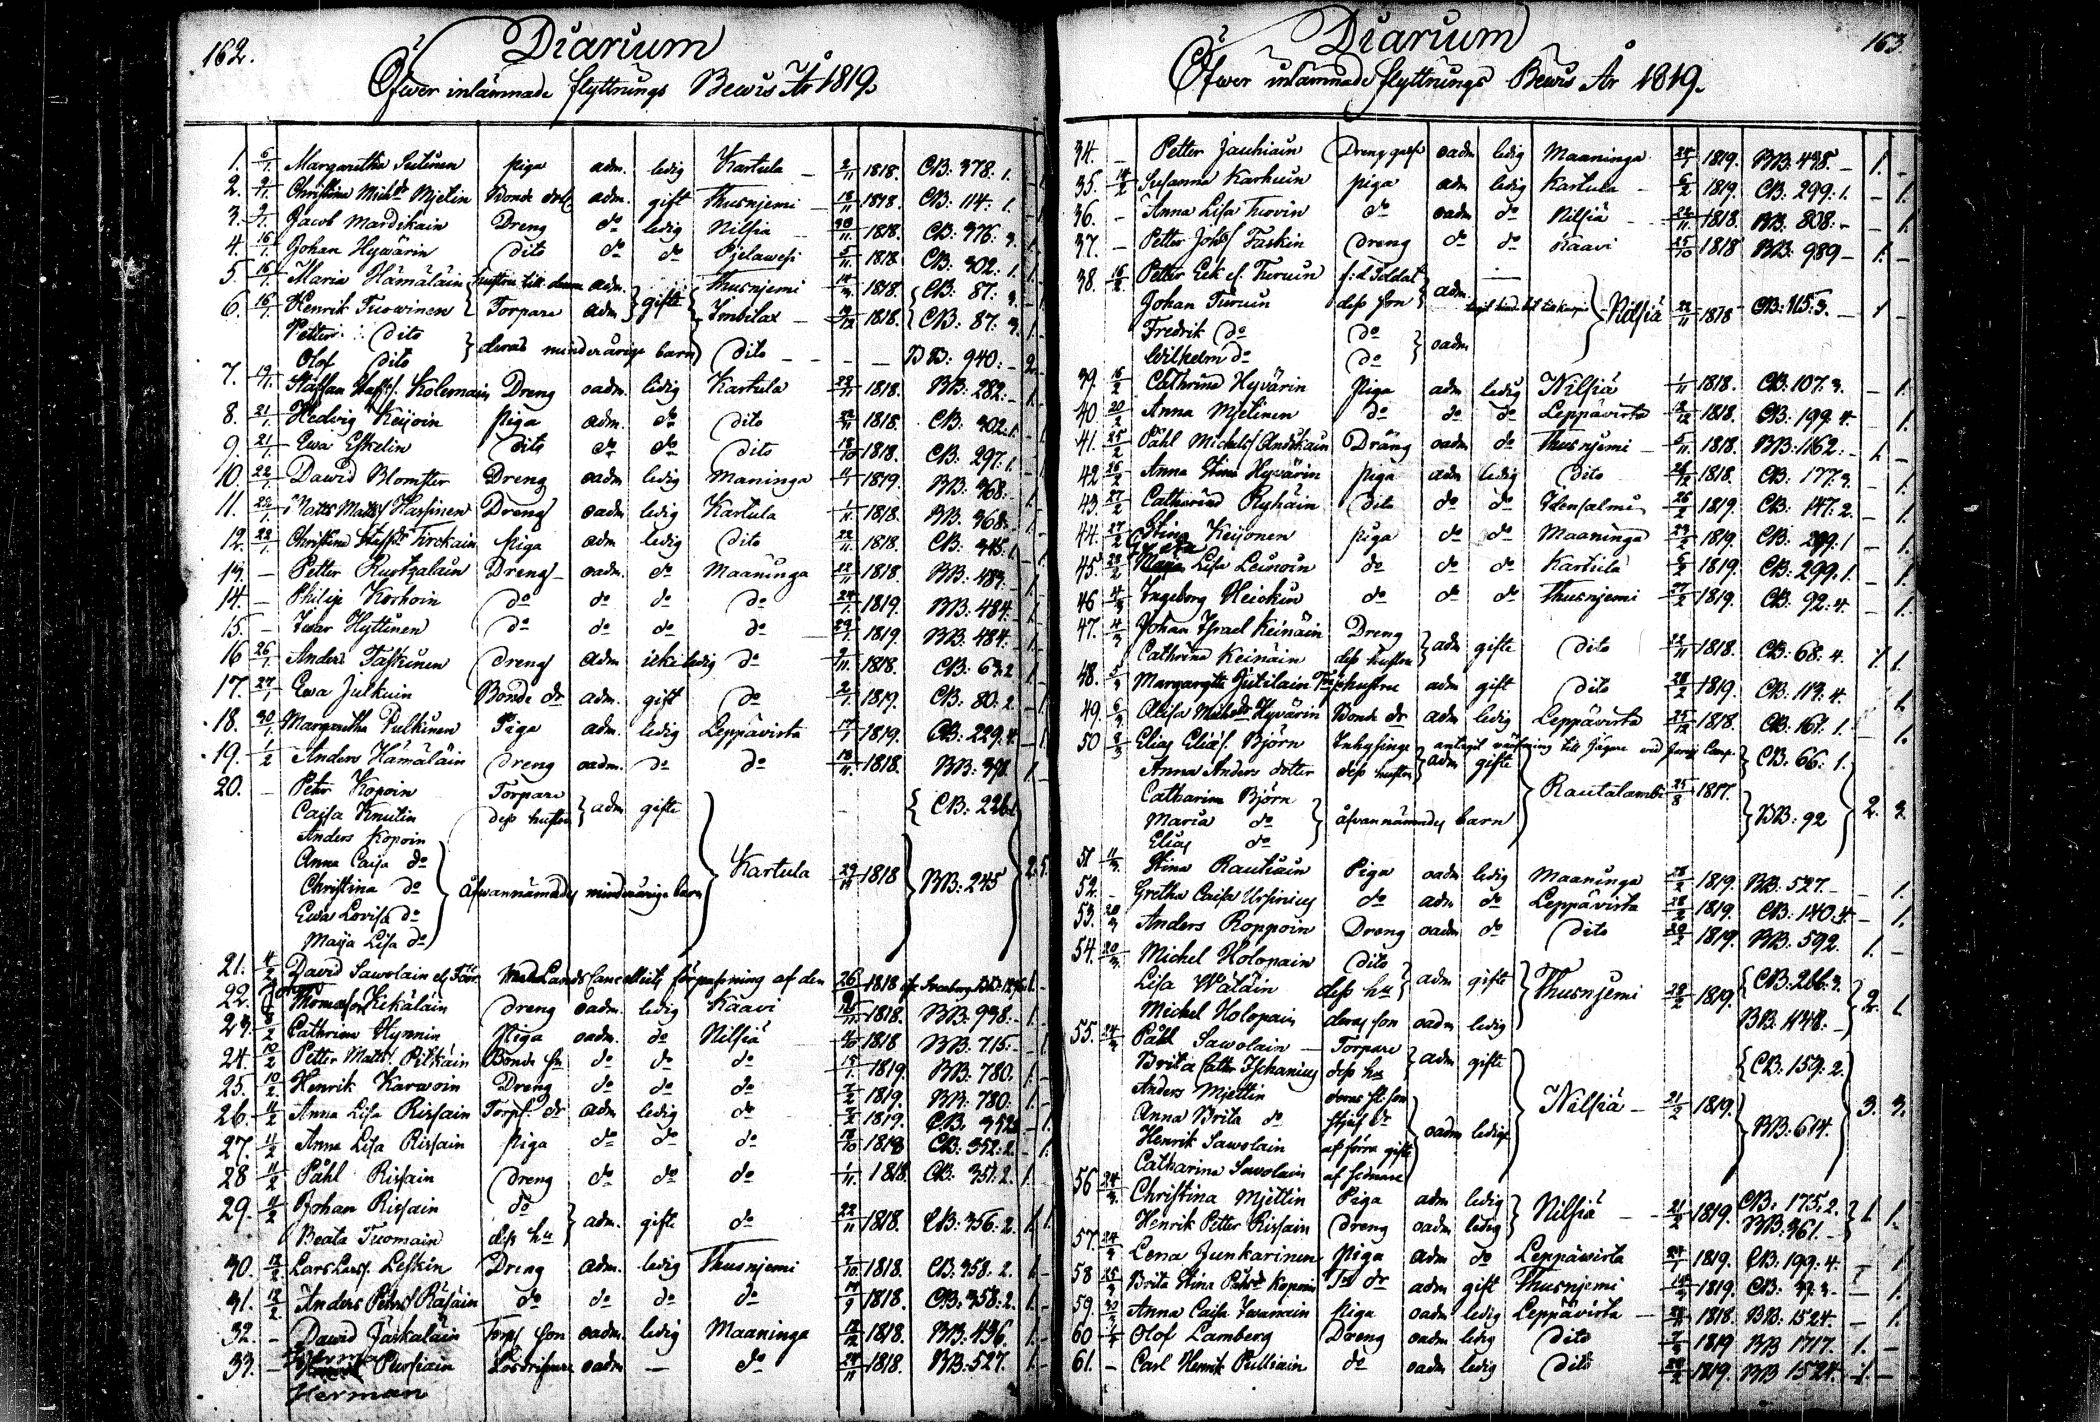 162.
Diarium
Öfwer inlämnade flyttnings Bewis År 1819.
1. 6/1. Margaretha piga adm. ledig Kartula 2/11 1818. CB: 378. 1.
2. 9/1. Christina Michsdr Mjelin Bonde adm. gift Thusnjemi 18/11 1818. CB: 114: 1.
3. 9/1. Jacob Mardikain Dreng do ledig Nilsia 30/11 1818. CB: 376. 3.
4. 16/1. Johan Hywärin dito do do Pjelawesi 5/11 1818 CB: 302: 1.
5. 16/1. Maria Hämäläin adm. Thusnjemi 1818. CB: 87: 3.
6. 16/1. Henrik Tuowinen Torpare adm gifte Imbilax 1818. CB: 87: 3.
Petter dito
Olof dito deras minderårige barn dito BB: 940: 2.
7. 19/1. Staffan Kolemain Dreng oadm. ledig Kartula 22/11 1818. BB: 282: 1.
8. 21/1. Hedvig Keijoin piga adm. do dito 22/11 1818. CB. 302. 1.
9. 21/1. Ewa Eskelin dito do do dito 18/10 1818. CB: 297. 1.
10. 22/1. Dawid Blomster Dreng oadm ledig Maninga 1819. BB: 368.
11. 22/1. Matts Mattss Hassinen Dreng oadm ledig Kartula 1/11 1818. BB. 368.
12. 22/1. Christina Tirckain piga adm ledig dito 22/11 1818. CB: 345. 1
13. - Petter Kurtzalain Dreng oadm. do Maaninga 22/11 1818. BB: 483.
14. - Philip Korhoin do do do do 24/1. 1819. BB: 484. 1.
15. - Iwar Hyttinen do do do do 22/1 1819. BB: 484. 1.
16 26/1. Anders Taskinen dreng adm icke ledig do 9/11. 1818. CB: 63. 2
17. 27/1 Ewa Julkuin Bonde dr adm. gift do 2/1. 1819. CB: 80: 2
18. 30/1. Margaretha Pulkinen Piga adm. ledig Leppävirta 17/1 1819. CB: 229. 4. 1.
19. 1/2 Anders Hämäläin dreng oadm. do do 13/11. 1818. BB: 1.
20. - Petr Kopoin Torpare
Caisa Knutin dess hustru adm gifte CB: 226
Anders Kopoin
Anna Caisa do
Christina do åfwannämndes minderårige barn Kartula 29/11 1818 BB: 245
Ewa Lovisa do
Maija Lisa do
21. 4/2 David Sawolain af den 26 1818
22. Thomas Kikäläin dreng oadm. ledig Kaavi 1818. BB: 998. 1.
23. 8/2 Cathrina Hynnin Piga oadm. do Nilsiä 1818 BB: 715.
24. 10/2 Petter Matts. Pitkäin Bonde sn do do do 15/1. 1819. BB: 780. 1.
25. 10/2 Henrik Karwoin Dreng do do do 7/2 1819. BB: 780. 1.
26. 11/2 Anna Lisa Rissain Torps. dr adm ledig do 7/2 1819. CB. 352
27. 11/2 Anna Lisa Rissain piga do do do 18/10 1818 CB: 352: 2. 1.
28 11/2 Påhl Rissain dreng do do do 1/11. 1818. CB. 351. 2. 1.
29. 11/2 Johan Rissain do
Beata Tuomain dess hu adm. gifte do 22/11 1818. CB: 356. 2. 1. 1.
30. 12/2 Lars Larss. Leskin Dreng adm. ledig Thusnjemi 7/10 1818. CB: 358. 2. 1.
31. 12/2 Anders Petrss Räsäin do do do do 19/9 1818. CB: 358: 2. 1.
32. - Dawid Jäskäläin Torps son oadm. ledig Maaninga 12/12 1818. BB: 436. 1.
33. - Pursiain oadm - do 24/11 1818. BB: 527. 1.
Herman
163
Diarium
Öfwer inlämnade flyttnings Bewis År 1819.
34. - Petter Jauhiain Dreng oadm ledig Maaninga 24/1 1819. BB: 438. 1.
35. 14/2 Susanna Karhuin piga adm ledig Kartula 6/2 1819. CB: 299: 1. 1.
36. - Anna Lisa Tuovin do oadm do Nilsiä 22/11 1818. BB: 808: 1.
37. - Petter Johss Taskin dreng do do Kaavi 25/10 1818 BB: 989 1.
38. 16/2 Petter Eek el. Turuin f:d Soldat
Johan Turuin dess son adm. Nilsiä 22/11 1818 CB: 115: 3. 1
Fredrik do do
Wilhelm do do oadm
39. 16/2 Cathrina Hyvärin Piga adm ledig Nilsiä 1/11 1818. CB: 107. 3. 1.
40. 20/2 Anna Mjelinen do do do Leppävirta 18/12 1818. CB: 199. 4. 1.
41. 25/2 Påhl Michelss Dräng oadm do Thusnjemi 6/11. 1818. BB: 1162. 1.
42 26/2 Anna Stina Hyvärin piga adm ledig dito 26/12 1818. CB: 177. 3. 1.
43. 27/2 Catharina Ryhäin dito do do Idensalmi 26/2 1819. CB: 147. 2. 1.
44. 27/2 Stina Keijonen piga do do Maaninga 23/2 1819. CB. 299. 1 1.
45. 28/2 Lisa Leinoin do do do Kartula 6/2 1819. CB: 299. 1. 1.
46 4/3 Ingeborg Heickin do do do Thusnjemi 27/2 1819. CB. 92. 4. 1.
47. 4/3 Johan Israel Keinäin Dreng
Cathrina Keinäin dess hustru adm gifte dito 22/11 1818. CB: 68. 4. 1. 1.
48. 5/3 Margaretha Jutilain hustru adm gift dito 28/2 1819. CB: 113. 4. 1.
49. 6/3 Hyvärin Bonde dr adm ledig Leppävirta 25/12 1818. CB: 161. 1. 1.
50 8/3 Elias Eliæs. Björn Inhysing antagit till Jägare
Anna Anders dotter dess hustru adm gifte CB: 66: 1.
Catharina Björn Rautalambi 25/8 1817.
Maria do åfvannämndes barn BB: 92 2. 2
Elias do
51 11/3 Stina Rautiain Piga oadm ledig Maaninga 28/2 1819. BB: 527. 1.
52. - Gretha Caisa Ursinius do adm do Leppävirta 28/2 1819. CB: 140. 4. 1.
53. 20/3 Anders Roppoin Dreng oadm do dito 28/2 1819. BB. 592. 1.
54. 20/3. Michel Holopain dito
Lisa Wätäin dess hu adm gifte Thusnjemi 28/2 1819. CB: 266: 3. 2. 1
Michel Holopain deras son oadm ledig BB. 1148.
55. 24/3 Påhl Sawolain Torpare
Brita Cathr Ischanius dess hu adm gifte CB: 159: 2.
Anders Mjettin
Anna Brita do oadm ledige Nilsiä 21/2 1819. BB: 614. 3. 3.
Henrik Sawolain af förra gifte
Catharina Sawolain af sednare
56 24/3. Christina Mjettin Piga adm ledig Nilsiä 21/2 1819. CB. 175. 2. 1. 1.
Henrik Petter Rissain dreng oadm ledig BB: 361.
57. 24/3 Lena Junkarinen piga adm do Leppävirta 24/1 1819. CB. 199. 4. 1.
58 25/3 Brita Stina Kopoin dr adm gift Thusnjemi 14/3 1819. CB. 39. 3. 1.
59. Anna Caisa piga oadm ledig Leppävirta 1818. BB. 1524. 1.
60 Olof Lamberg Dreng oadm ledig dito 1819 BB 1717. 1.
61. - Carl Henrik Pulliain do oadm ledig dito 28/2 1819. BB 1524. 1.